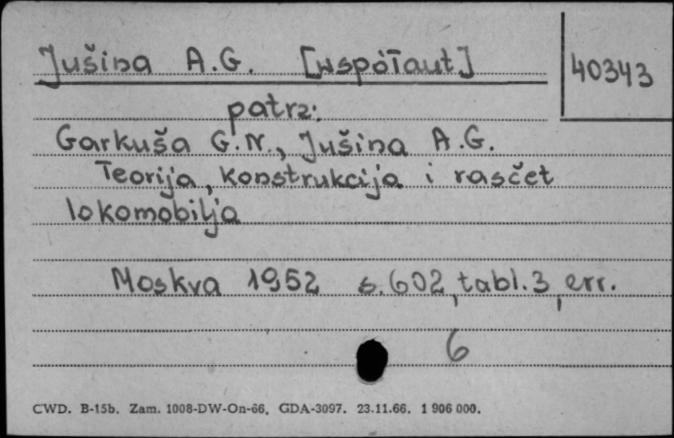 Jušina A.G. [współaut]
40343
patrz:
Garkuša G.N., Jušina A.G.
Teorija, konstrukcija i rasčet
lokomobilja
Moskva 1952 s.602, tabl.3, err.
6
CWD. B-15b. Zam. 1008-DW-On-66. GDA-3097. 23.11.66. 1 906 000.